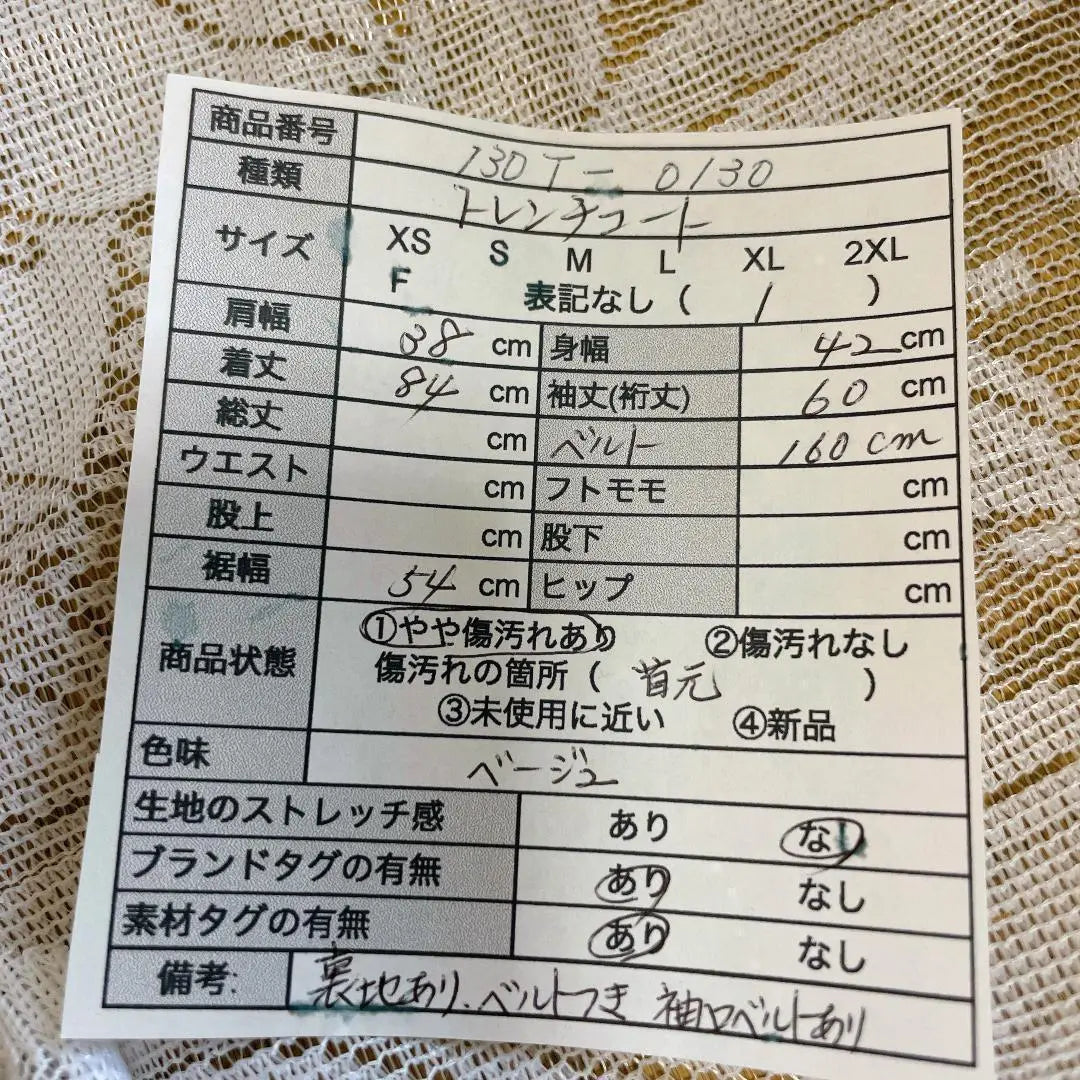 商品番号 130T-0130
種類 トレンチコート
サイズ XS S M L XL 2XL
F 表記なし ( 1 )
肩幅 38 cm 身幅 42 cm
着丈 84 cm 袖丈(裄丈) 60 cm
総丈 cm ベルト 160 cm
ウエスト cm フトモモ cm
股上 cm 股下 cm
裾幅 54 cm ヒップ cm
商品状態 ①やや傷汚れあり ②傷汚れなし
傷汚れの箇所 ( 首元 )
③未使用に近い ④新品
色味 ベージュ
生地のストレッチ感 あり なし
ブランドタグの有無 あり なし
素材タグの有無 あり なし
備考: 裏地あり、ベルトつき 袖口ベルトあり